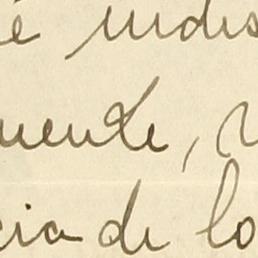 é indis
uente,
cia de lo